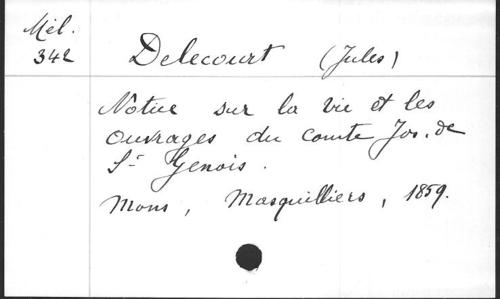 Mél.
342
Delecourt (Jules)
Notice sur la vie et les
ouvrages du comte Jos. de
St Genois.
Mons, Masquilliers, 1859.